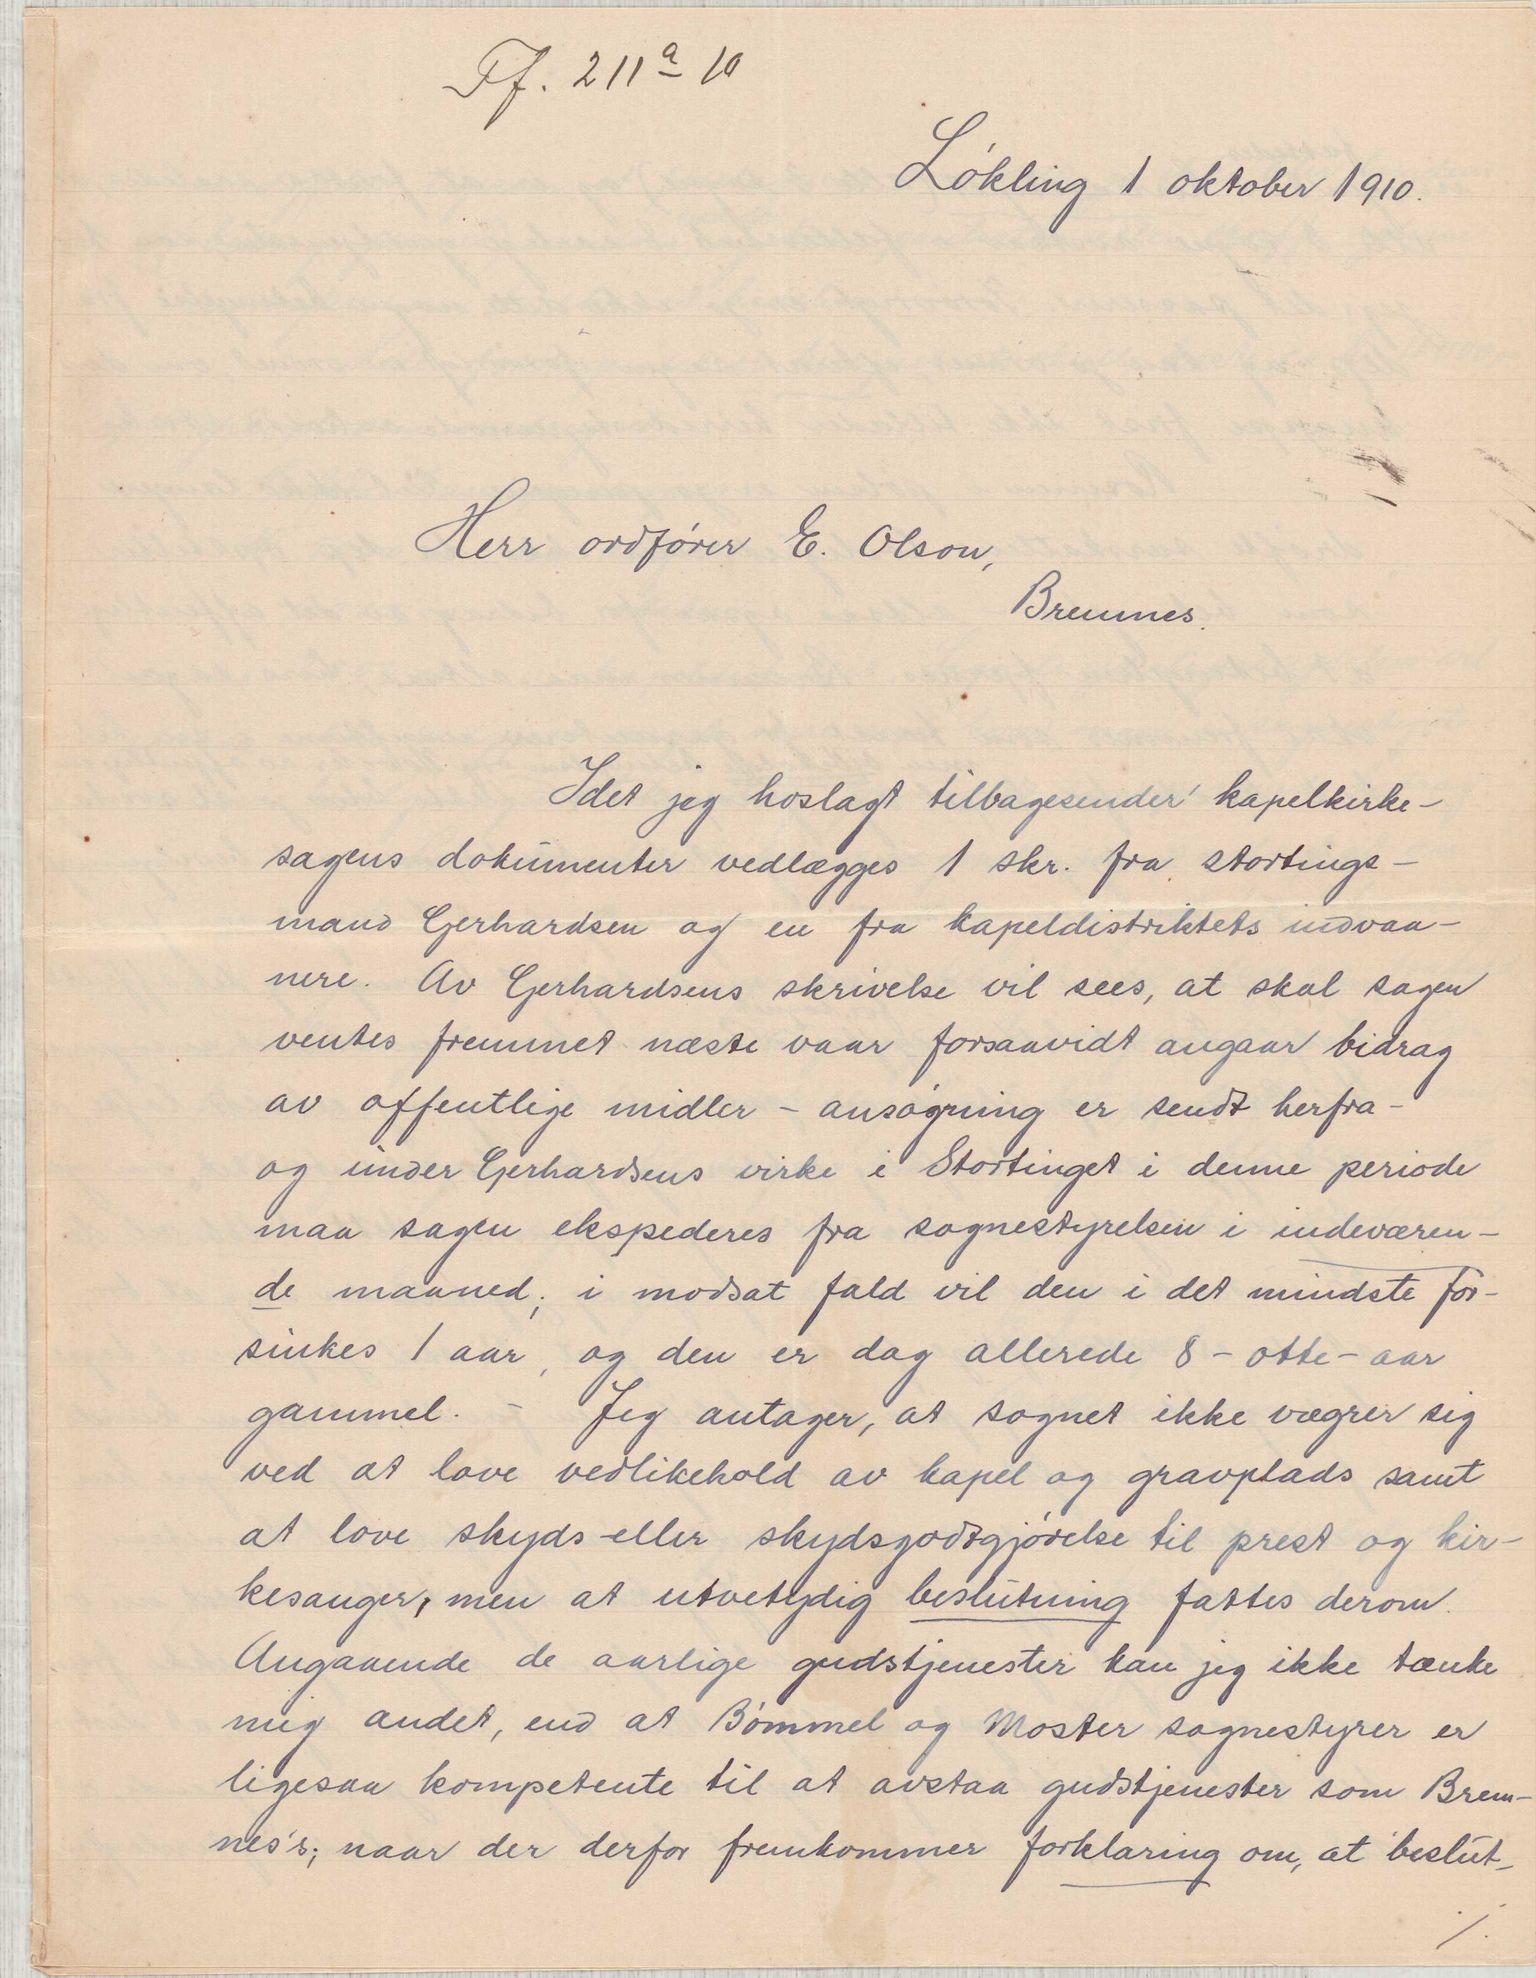 Tf. 211a 10
Løkling 1 oktober 1910.
Herr ordfører E. Olson,
Bremnes.
Idet jeg hoslagt tilbagesender kapelkirke-
sagens dokumenter vedlægges 1 skr. fra stortings-
mand Gerhardsen og en fra kapeldistriktets indvaa-
nere. Av Gerhardsens skrivelse vil sees, at skal sagen
ventes fremmet næste vaar forsaavidt angaar bidrag
av offentlige midler - ansøgning er sendt herfra -
og under Gerhardsens virke i Stortinget i denne periode
maa sagen ekspederes fra sognestyrelsen i indeværen-
de maaned; i modsat fald vil den i det mindste for-
sinkes 1 aar, og den er dog allerede 8 - otte - aar
gammel. - Jeg antager, at sognet ikke vægrer sig
ved at love vedlikehold av kapel og gravplads samt
at love skyds- eller skydsgodtgjørelse til prest og kir-
kesanger, men at utvetydig beslutning fattes derom.
Angaaende de aarlige gudstjenester kan jeg ikke tænke
mig andet, end at Bømmel og Moster sognestyrer er
ligesaa kompetente til at avstaa gudstjenester som Brem-
nes's; naar der derfor fremkommer forklaring om, at beslut-
./.